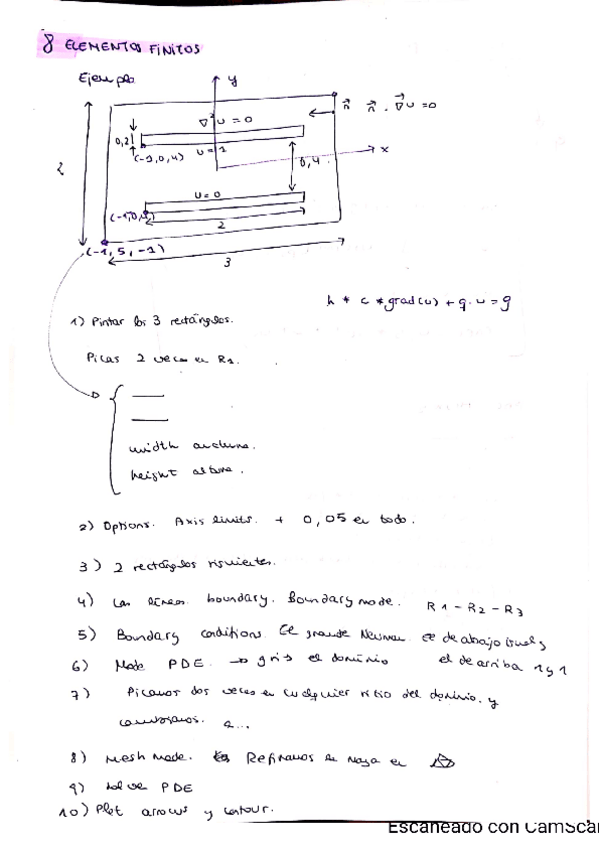 8 ELEMENTOS FINITOS
Ejemplo
y
∇²u = 0
n⃗ n⃗ . ∇⃗u = 0
0,2
u = 1
(-1,0,4)
x
0,4
2
u = 0
2
(-1,5,-1)
3
h * c * grad(u) + q.u = g
1) Pintar los 3 rectángulos.
Picas 2 veces en R1.
width anchura.
height altura.
2) Options. Axis limits. + 0,05 en todo.
3) 2 rectángulos siguientes.
4) Las líneas boundary. Boundary mode. R1-R2-R3
5) Boundary conditions. El grande Neuman. el de abajo
el de arriba 1 y 1
6) Mode PDE. → gris el dominio
7) Picamos dos veces en cualquier sitio del dominio. y
8) Mesh mode. Refinamos en
9) Solve PDE
10) Plot arrows y contour.
Escaneado con CamScan